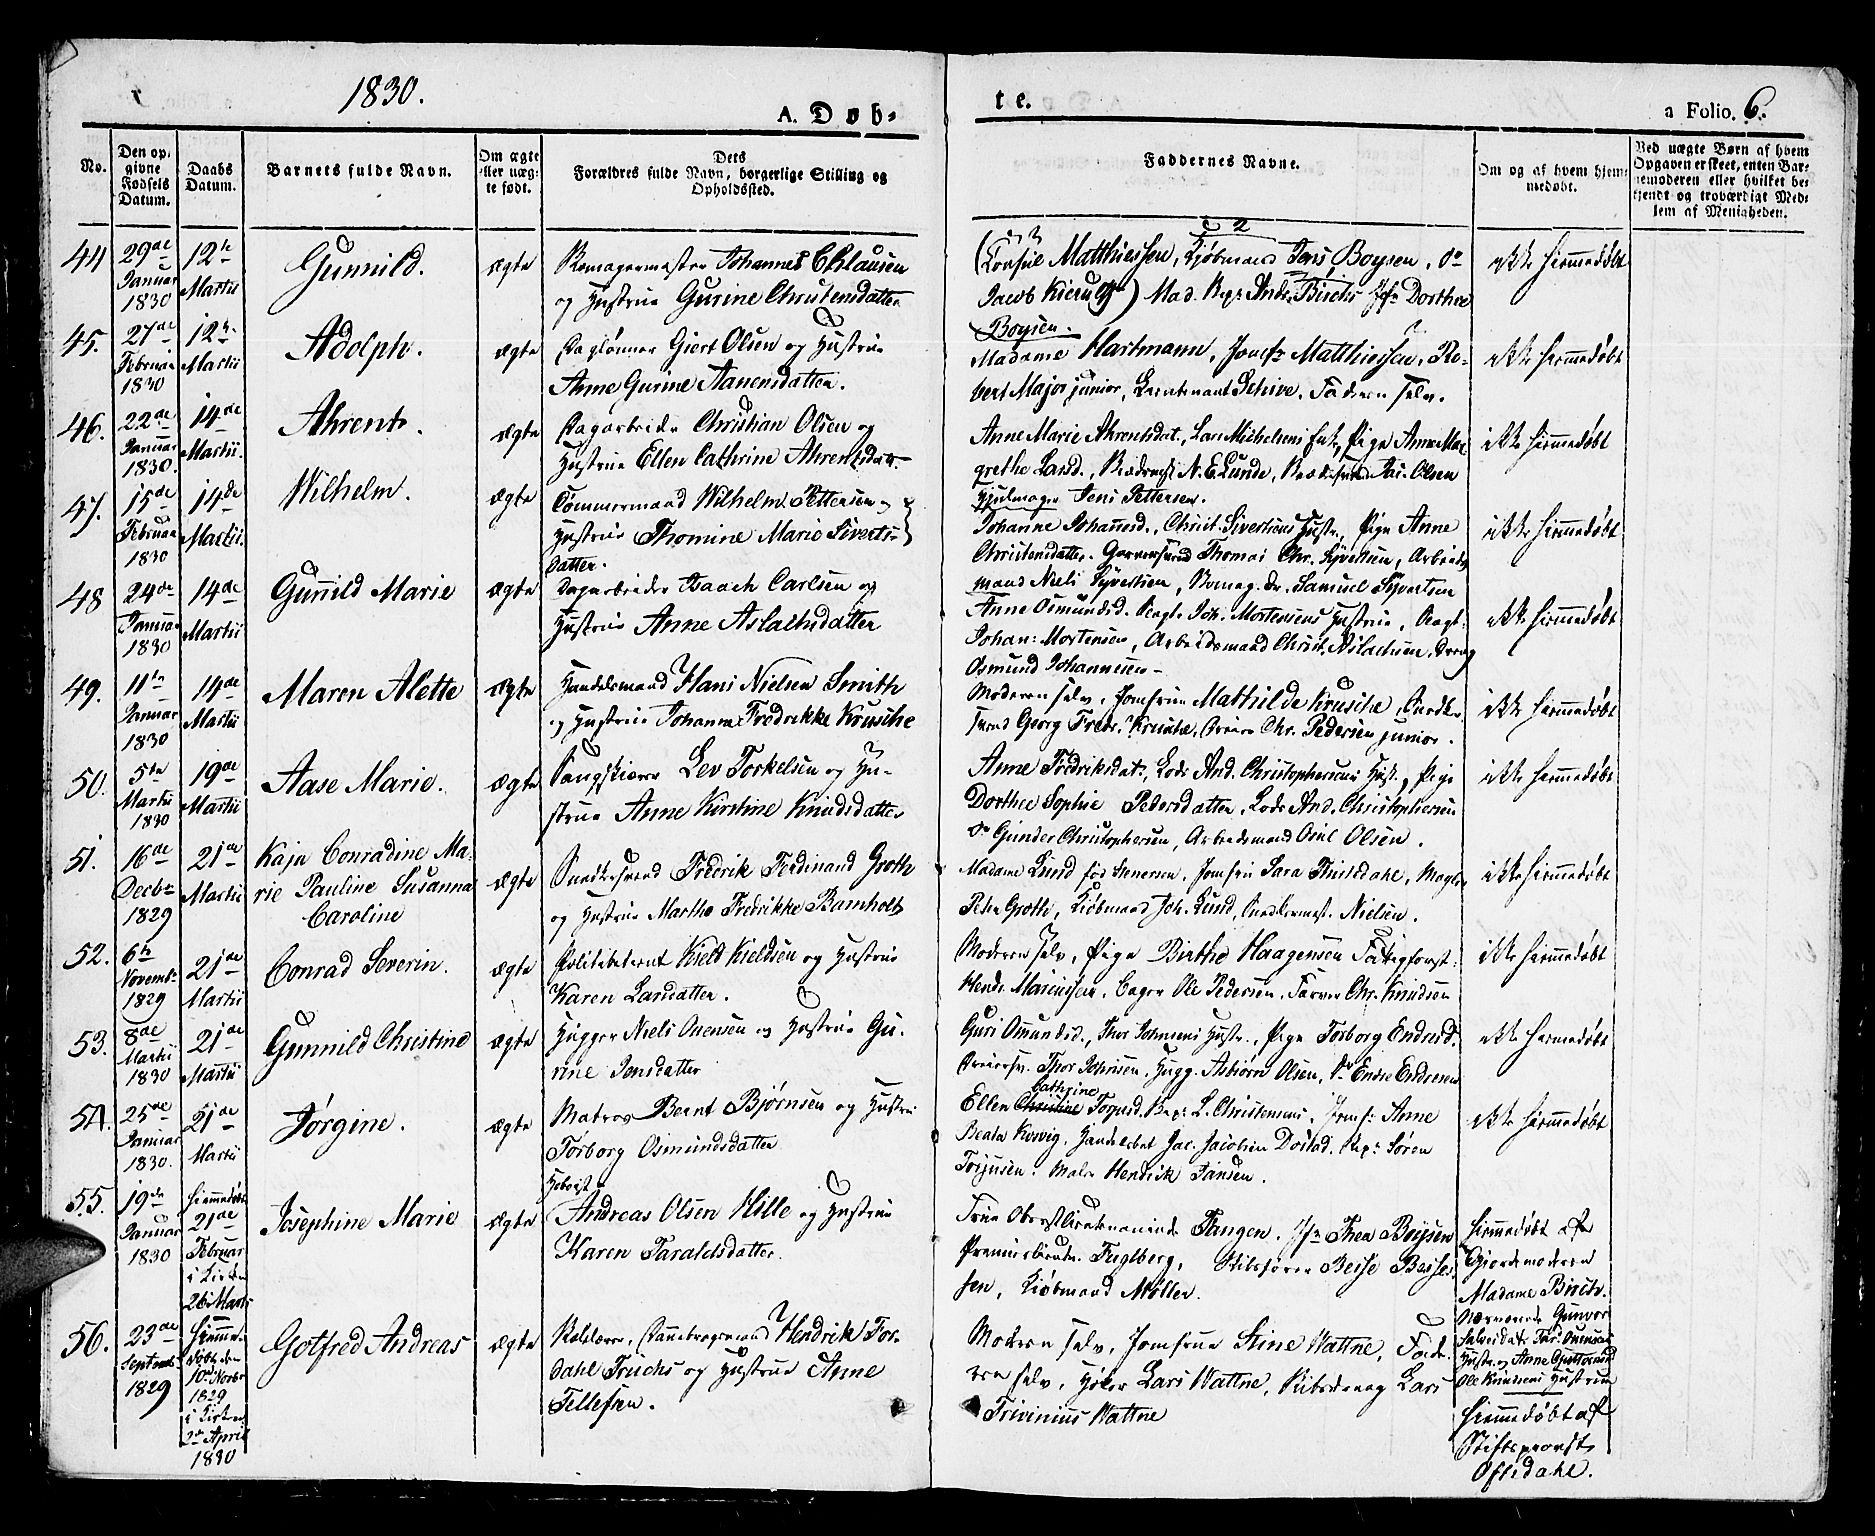 1830.
A. Døb-
te.
a Folio. 6.
No.
Den op-
givne
Fødsels
Datum.
Daabs
Datum.
Barnets fulde Navn.
Om ægte
eller uæg-
te født.
Dets
Forældres fulde Navn, borgerlige Stilling og
Opholdssted.
Faddernes Navne.
Om og af hvem hjem-
medøbt.
Ved uægte Børn af hvem
Opgaven er skeet, enten Bar-
nemoderen eller hvilket be-
kjendt og troværdigt Med-
lem af Menigheden.
44
29de
Januar
1830
12te
Martii
Gunnild.
ægte
Johannes Clausen
og Hustrue Gurine Christensdatter
Matthiessen, Kjøbmand Jens Boysen, do
Jacob Mad. Andr. Birchs Jfr Dorthea
Boysen.
ikke hiemmedøbt
45.
27de
Februar
1830
12te
Martii
Adolph.
ægte
Daglønner Giert Olsen og Hustrue
Anne Gurine Aanensdatter.
Madame Hartmann, Jomfr Matthiessen, Ro-
bert Major junior, Lieutenant Schive, Faderen selv.
ikke hiemmedøbt
46.
22de
Januar
1830.
14de
Martii.
Ahrent.
ægte
Dagarbeider Christian Olsen og
Hustrue Ellen Cathrine Ahrentsdatr.
Anne Marie Ahrentsdat., Lars Michelsens Enke, Pige Anne Mar-
grethe N. E. Lunde, Jac. Olsen
Hjulmager Jens Pettersen.
ikke hiemmedøbt
47.
15de
Februar
1830
14de
Martii.
Wilhelm.
ægte
Tømmermand Wilhelm Pettersen og
Hustrue Thomine Marie Siverts-
datter.
Johanne Johannesd., Christ. Sivertsens Hustr., Pige Anne
Christensdatter. Garversvend Thomas Chr. Syvertsen, Arbeids-
mand Niels Syvertsen, Samuel Syvertsen
ikke hiemmedøbt
48
24de
Januar
1830
14de
Martii
Gunild Marie
ægte
Dagarbeider Isaach Carlsen og
Hustrue Anne Aslachsdatter
Anne Osmundsd. Joh. Mortensens Hustrue,
Johan: Mortensen, Arbeidsmand Christ. Aslachsen, Dreng
Osmund Johannesen
ikke hiemmedøbt
49.
11te
Januar
1830
14de
Martii
Maren Alette
ægte
Handelsmand Hans Nielsen Smith
og Hustrue Johanna Fredrikke Krusche
Moderen selv, Jomfrue Mathilde Krusche, Snedker
svend Georg Fredr. Krusche, Chr. Pedersen junior.
ikke hiemmedøbt
50.
5te
Martii
1830
19de
Martii
Aase Marie.
ægte
Lev Torkelsen og Hu-
strue Anne Kirstine Knudsdatter
Anne Fredriksdat., Lods And. Christophersens Hust., Pige
Dorthea Sophie Pedersdatter, Lods And. Christophersen
do Gunder Christophersen, Arbeidsmand Olsen.
ikke hiemmedøbt
51.
16de
Decbr
1829
21de
Martii
Kaja Conradine Ma-
rie Pauline Susanna
Caroline
ægte
Snedkersvend Fredrik Ferdinand Groth
og Hustrue Marthe Fredrikke Bamholt
Madame Lund fød Stenersen, Jomfru Sara
Peter Groth, Kiøbmand Joh. Lund, Snedkermest. Nielsen.
ikke hiemmedøbt
52.
6te
Novembr
1829
21de
Martii
Conrad Severin.
ægte
Politibetient Kield Kieldsen og Hustrue
Karen Larsdatter.
Moderen selv, Pige Birthe Haagensen
Marcussen, Bager Ole Pedersen, Farver Chr. Knudsen
ikke hiemmedøbt
53.
8de
Martii
1830
21de
Martii
Gunnild Christine
ægte
Hugger Niels Onensen og Hustrue Gu-
rine Jensdatter
Guri Omundsd., Thor Johnsens Hustr., Pige Torborg Endresd.
Thor Johnsen, Hugg. Asbiørn Olsen, do Endre Endresen
ikke hiemmedøbt
54.
25de
Januar
1830.
21de
Martii
Jørgine.
ægte
Matros Bernt Bjørnsen og Hustru
Torborg Osmundsdatter
Cathrine
Ellen Christine L. Christensens, Jomfr. Anne
Beata Handelsbet. Jac. Jacobsen Dostad, Søren
Terjusen. Maler Hendrik Jansen.
ikke hiemmedøbt
55.
19de
Januar
1830
hiemmedøbt
21de
Februar
i Kirken
26 Marts
Josephine Marie
ægte
Andreas Olsen Hille og Hustrue
Karen Taraldsdatter.
Frue Oberstlieutenantinde Fangen, Jfr Thea Boysen
Premierlieutn. Fuglberg, Skibsfører Beise Beise-
sen, Kiøbmand Møller.
hiemmedøbt af
Giordemoderen
Madame Birch.
Nærværende Gunvor
Hustr. og Anne
Ole Knudsens Hustrue
56.
23de
Septembr
1829
hiemme-
døbt den
10de Novbr
1829
i Kirken
2de April
1830
Gotfred Andreas
ægte
Hendrik For-
dahl Fuchs og Hustrue Anne
Tellefsen.
Moderen selv, Jomfrue Stine Wattne, Fade-
ren selv, Lars Wattne, Lars
Trivinius Wattne
hiemmedøbt af
Stiftsprovst
Oftedahl.